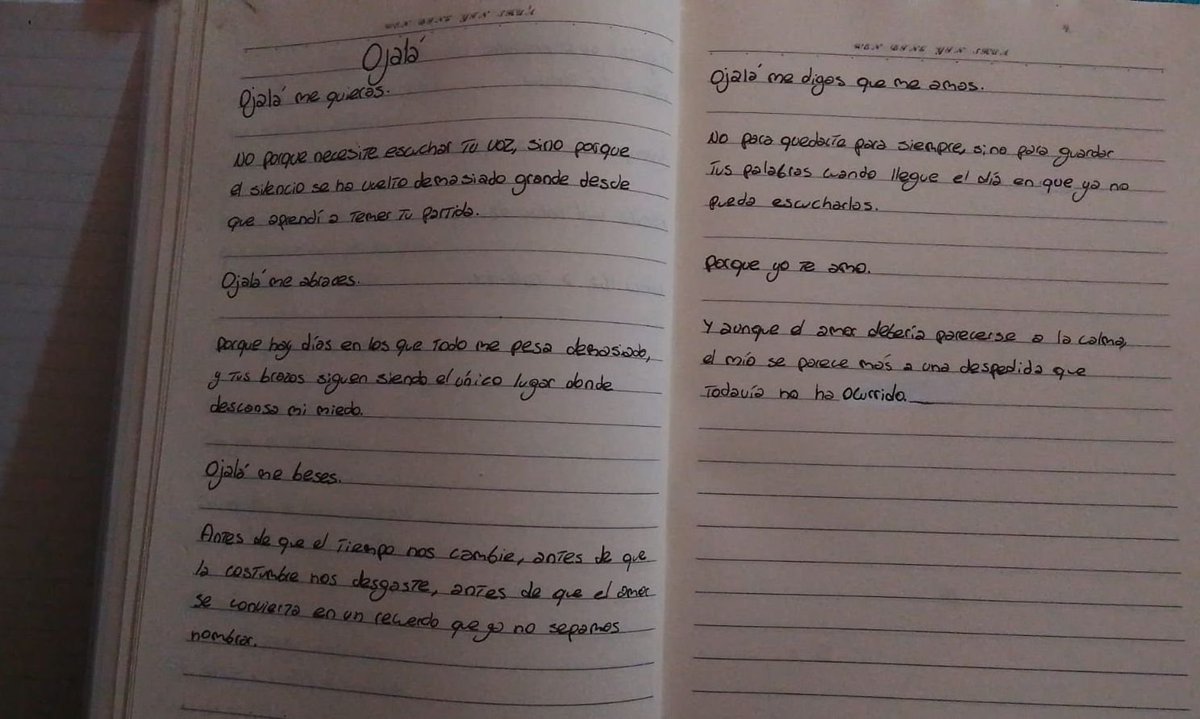 Ojalá
Ojalá me quieras.
No porque necesite escuchar tu voz, sino porque
el silencio se ha vuelto demasiado grande desde
que aprendí a temer tu partida.
Ojalá me abraces.
Porque hay días en los que todo me pesa demasiado,
y tus brazos siguen siendo el único lugar donde
descansa mi miedo.
Ojalá me beses.
Antes de que el tiempo nos cambie, antes de que
la costumbre nos desgaste, antes de que el amor
se convierta en un recuerdo que ya no sepamos
nombrar.
Ojalá me digas que me amas.
No para quedarte para siempre, sino para guardar
tus palabras cuando llegue el día en que ya no
pueda escucharlas.
Porque yo te amo.
Y aunque el amor debería parecerse a la calma,
el mío se parece más a una despedida que
todavía no ha ocurrido.